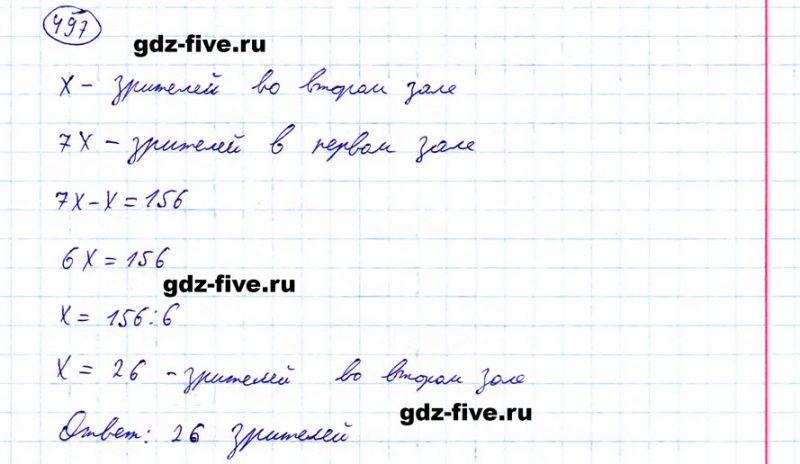 497
gdz-five.ru
x - зрителей во втором зале
7x - зрителей в первом зале
7x - x = 156
6x = 156
gdz-five.ru
x = 156:6
x = 26 - зрителей во втором зале
gdz-five.ru
Ответ: 26 зрителей